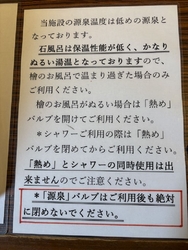 当施設の源泉温度は低めの源泉
となっております。
石風呂は保温性能が低く、かなり
ぬるい湯温となっておりますので、
檜のお風呂で温まり過ぎた場合のみ
ご利用ください。
檜のお風呂がぬるい場合は「熱め」
バルブを開けてご利用ください。
＊シャワーご利用の際は「熱め」
バルブを閉めてからご利用ください。
「熱め」とシャワーの同時使用は出
来ませんのでご注意ください。
＊「源泉」バルブはご利用後も絶対
に閉めないでください。